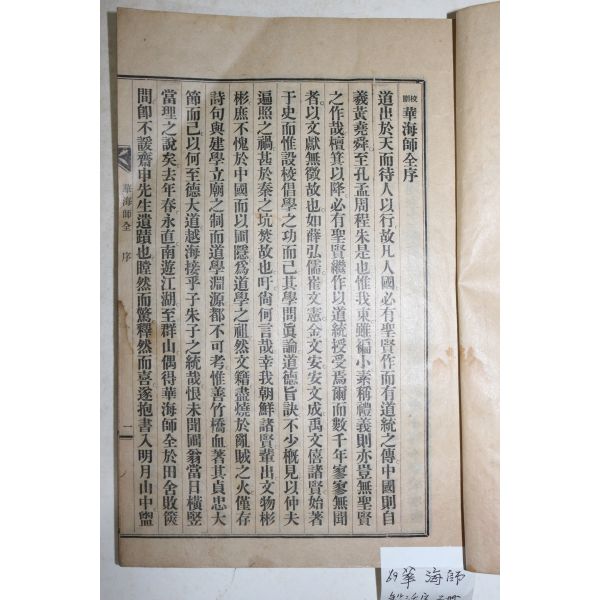 校刪華海師全序
道出於天而待人以行故凡人國必有聖賢作而有道統之傳中國則自
羲黃堯舜至孔孟周程朱是也惟我東雖編小素稱禮義則亦豈無聖賢
之作哉檀箕以降必有聖賢繼作以道統授受焉爾而數千年寥寥無聞
者以文獻無徵故也如薛弘儒崔文憲金文安安文成禹文僖諸賢始著
于史而惟設校倡學之功而已其學問眞論道德旨訣不少槪見以仲夫
遍照之禍甚於秦之坑焚故也吁尙何言哉幸我朝鮮諸賢輩出文物彬
彬庶不愧於中國而以圃隱爲道學之祖然文籍盡燒於亂賊之火僅存
詩句與建學立廟之制而道學淵源都不可考惟善竹橋血著其貞忠大
節而已以何至德大道越海接乎子朱子之統哉恨未聞圃翁當日橫竪
當理之說矣去年春永直南遊江湖至群山偶得華海師全於田舍敗篋
間卽不諼齋申先生遺蹟也瞠然而驚釋然而喜遂抱書入明月山中盥
華海師全 序 一
69 華海師